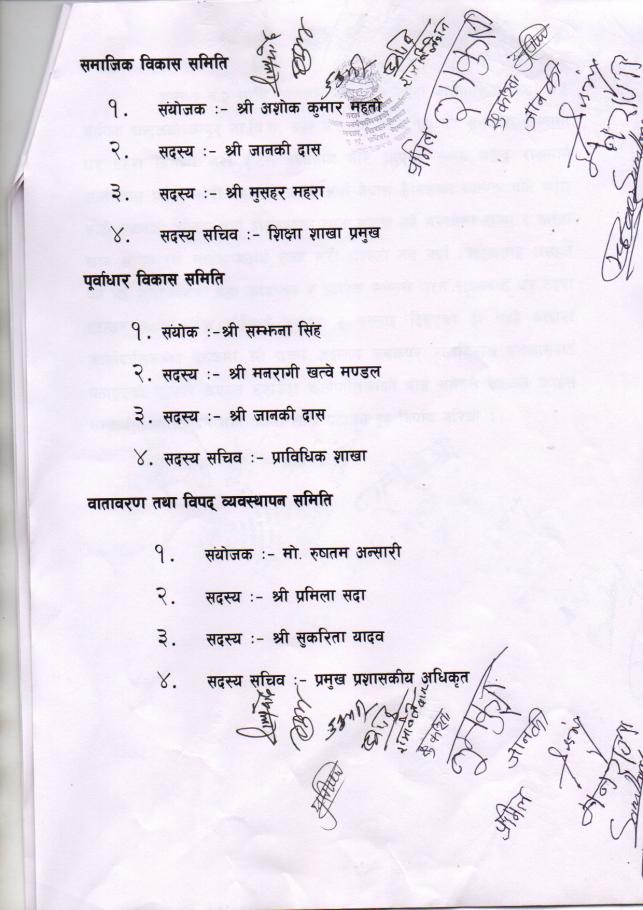 समाजिक विकास समिति
१. संयोजक :- श्री अशोक कुमार महतो
२. सदस्य :- श्री जानकी दास
३. सदस्य :- श्री मुसहर महरा
४. सदस्य सचिव :- शिक्षा शाखा प्रमुख
पूर्वाधार विकास समिति
१. संयोक :-श्री सम्झना सिंह
२. सदस्य :- श्री मनरागी खत्वे मण्डल
३. सदस्य :- श्री जानकी दास
४. सदस्य सचिव :- प्राविधिक शाखा
वातावरण तथा विपद् व्यवस्थापन समिति
१. संयोजक :- मो. रुषातम अन्सारी
२. सदस्य :- श्री प्रमिला सदा
३. सदस्य :- श्री सुकरिता यादव
४. सदस्य सचिव :- प्रमुख प्रशासकीय अधिकृत
जानकी
प्रमिल
जानकी
प्रमिल